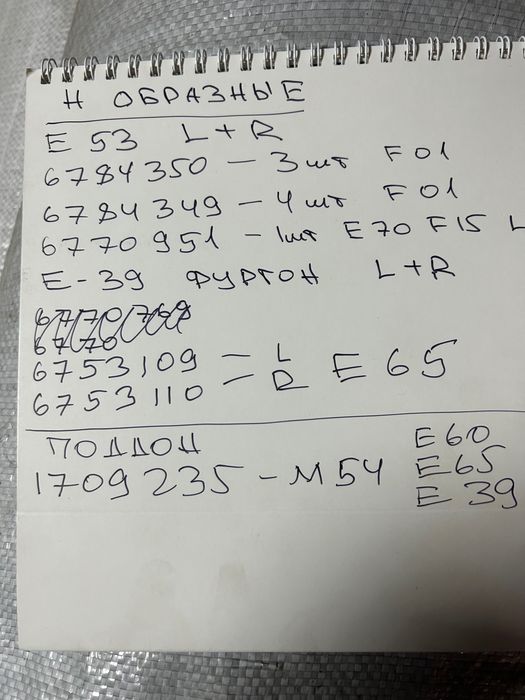 Н ОБРАЗНЫЕ
E 53 L + R
6784350 – 3 шт F 01
6784349 – 4 шт F 01
6770951 – 1 шт E70 F15 L
E-39 ФУРГОН L + R
6753109 – L E 65
6753110 – R
ПОДДОН
1709235 – M54 E60
E65
E 39